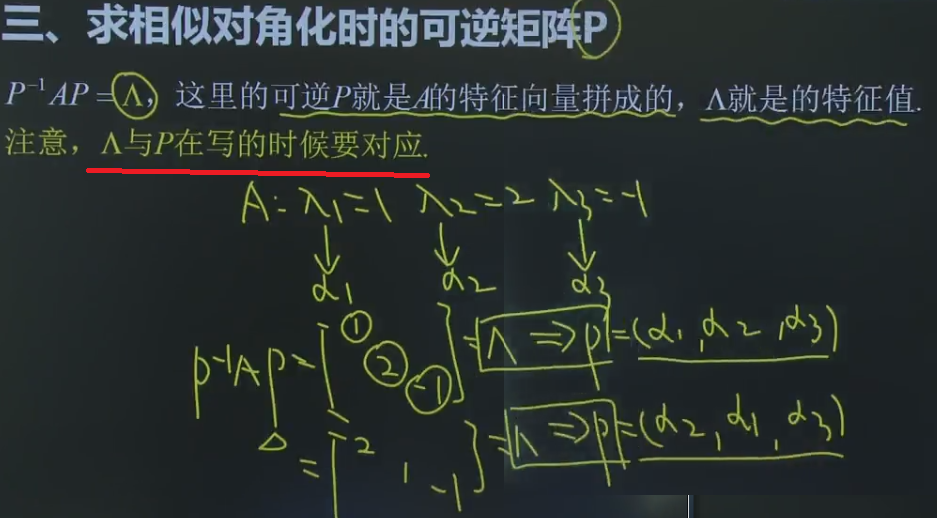 三、求相似对角化时的可逆矩阵P
P⁻¹AP=Λ，这里的可逆P就是A的特征向量拼成的，Λ就是的特征值.
注意，Λ与P在写的时候要对应.
A: λ₁=1 λ₂=2 λ₃=-1
α₁ α₂ α₃
P⁻¹AP=[1 2 -1]=Λ⇒P=(α₁,α₂,α₃)
=[2 1 -1]=Λ⇒P=(α₂,α₁,α₃)